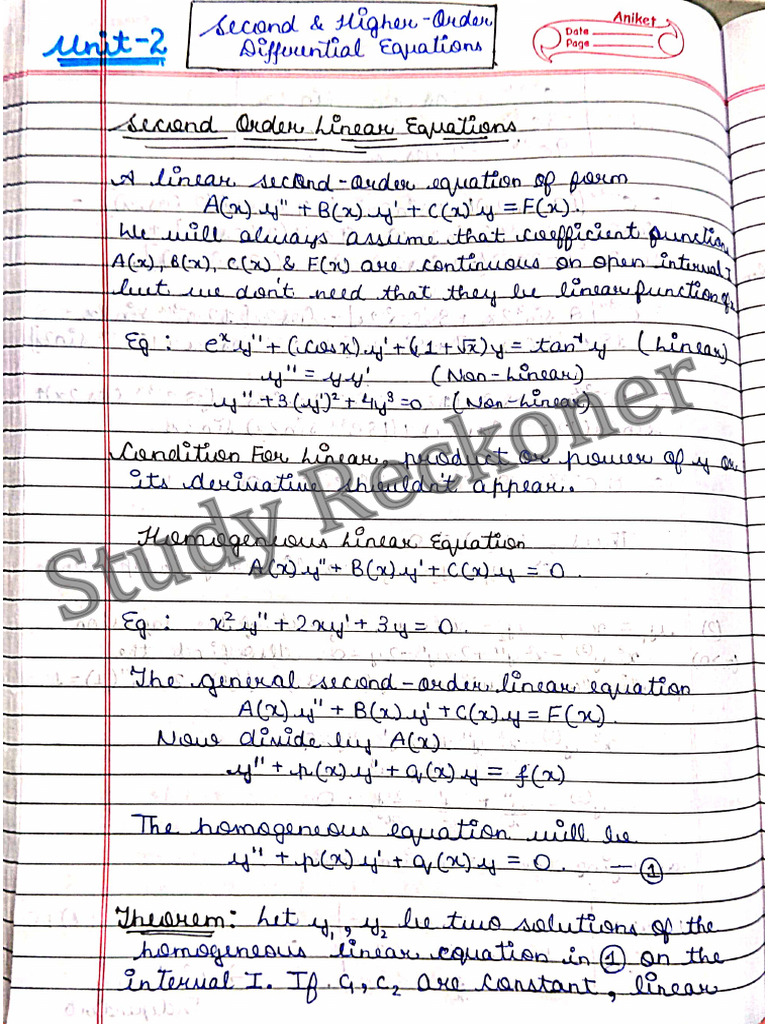 Unit-2
Second & Higher-Order
Differential Equations
Aniket
Date
Page
Second Order Linear Equations
A linear second-order equation of form
A(x) y'' + B(x) y' + C(x) y = F(x).
We will always assume that coefficient function
A(x), B(x), C(x) & F(x) are continuous on open interval I
but we don't need that they be linear function of x
Eg : eˣ y'' + (cosx) y' + (1 + √x) y = tan⁻¹ y (Linear)
y'' = yy' (Non-Linear)
y'' + 3(y')² + 4y³ = 0 (Non-Linear)
Condition For Linear, product or power of y or
its derivative shouldn't appear.
Homogeneous Linear Equation
A(x) y'' + B(x) y' + C(x) y = 0.
Eg : x² y'' + 2xy' + 3y = 0.
The general second-order linear equation
A(x) y'' + B(x) y' + C(x) y = F(x).
Now divide by A(x)
y'' + p(x) y' + q(x) y = f(x)
The homogeneous equation will be
y'' + p(x) y' + q(x) y = 0. — ①
Theorem: Let y₁, y₂ be two solutions of the
homogeneous linear equation in ① on the
interval I. If c₁, c₂ are constant, linear
Study Reckoner